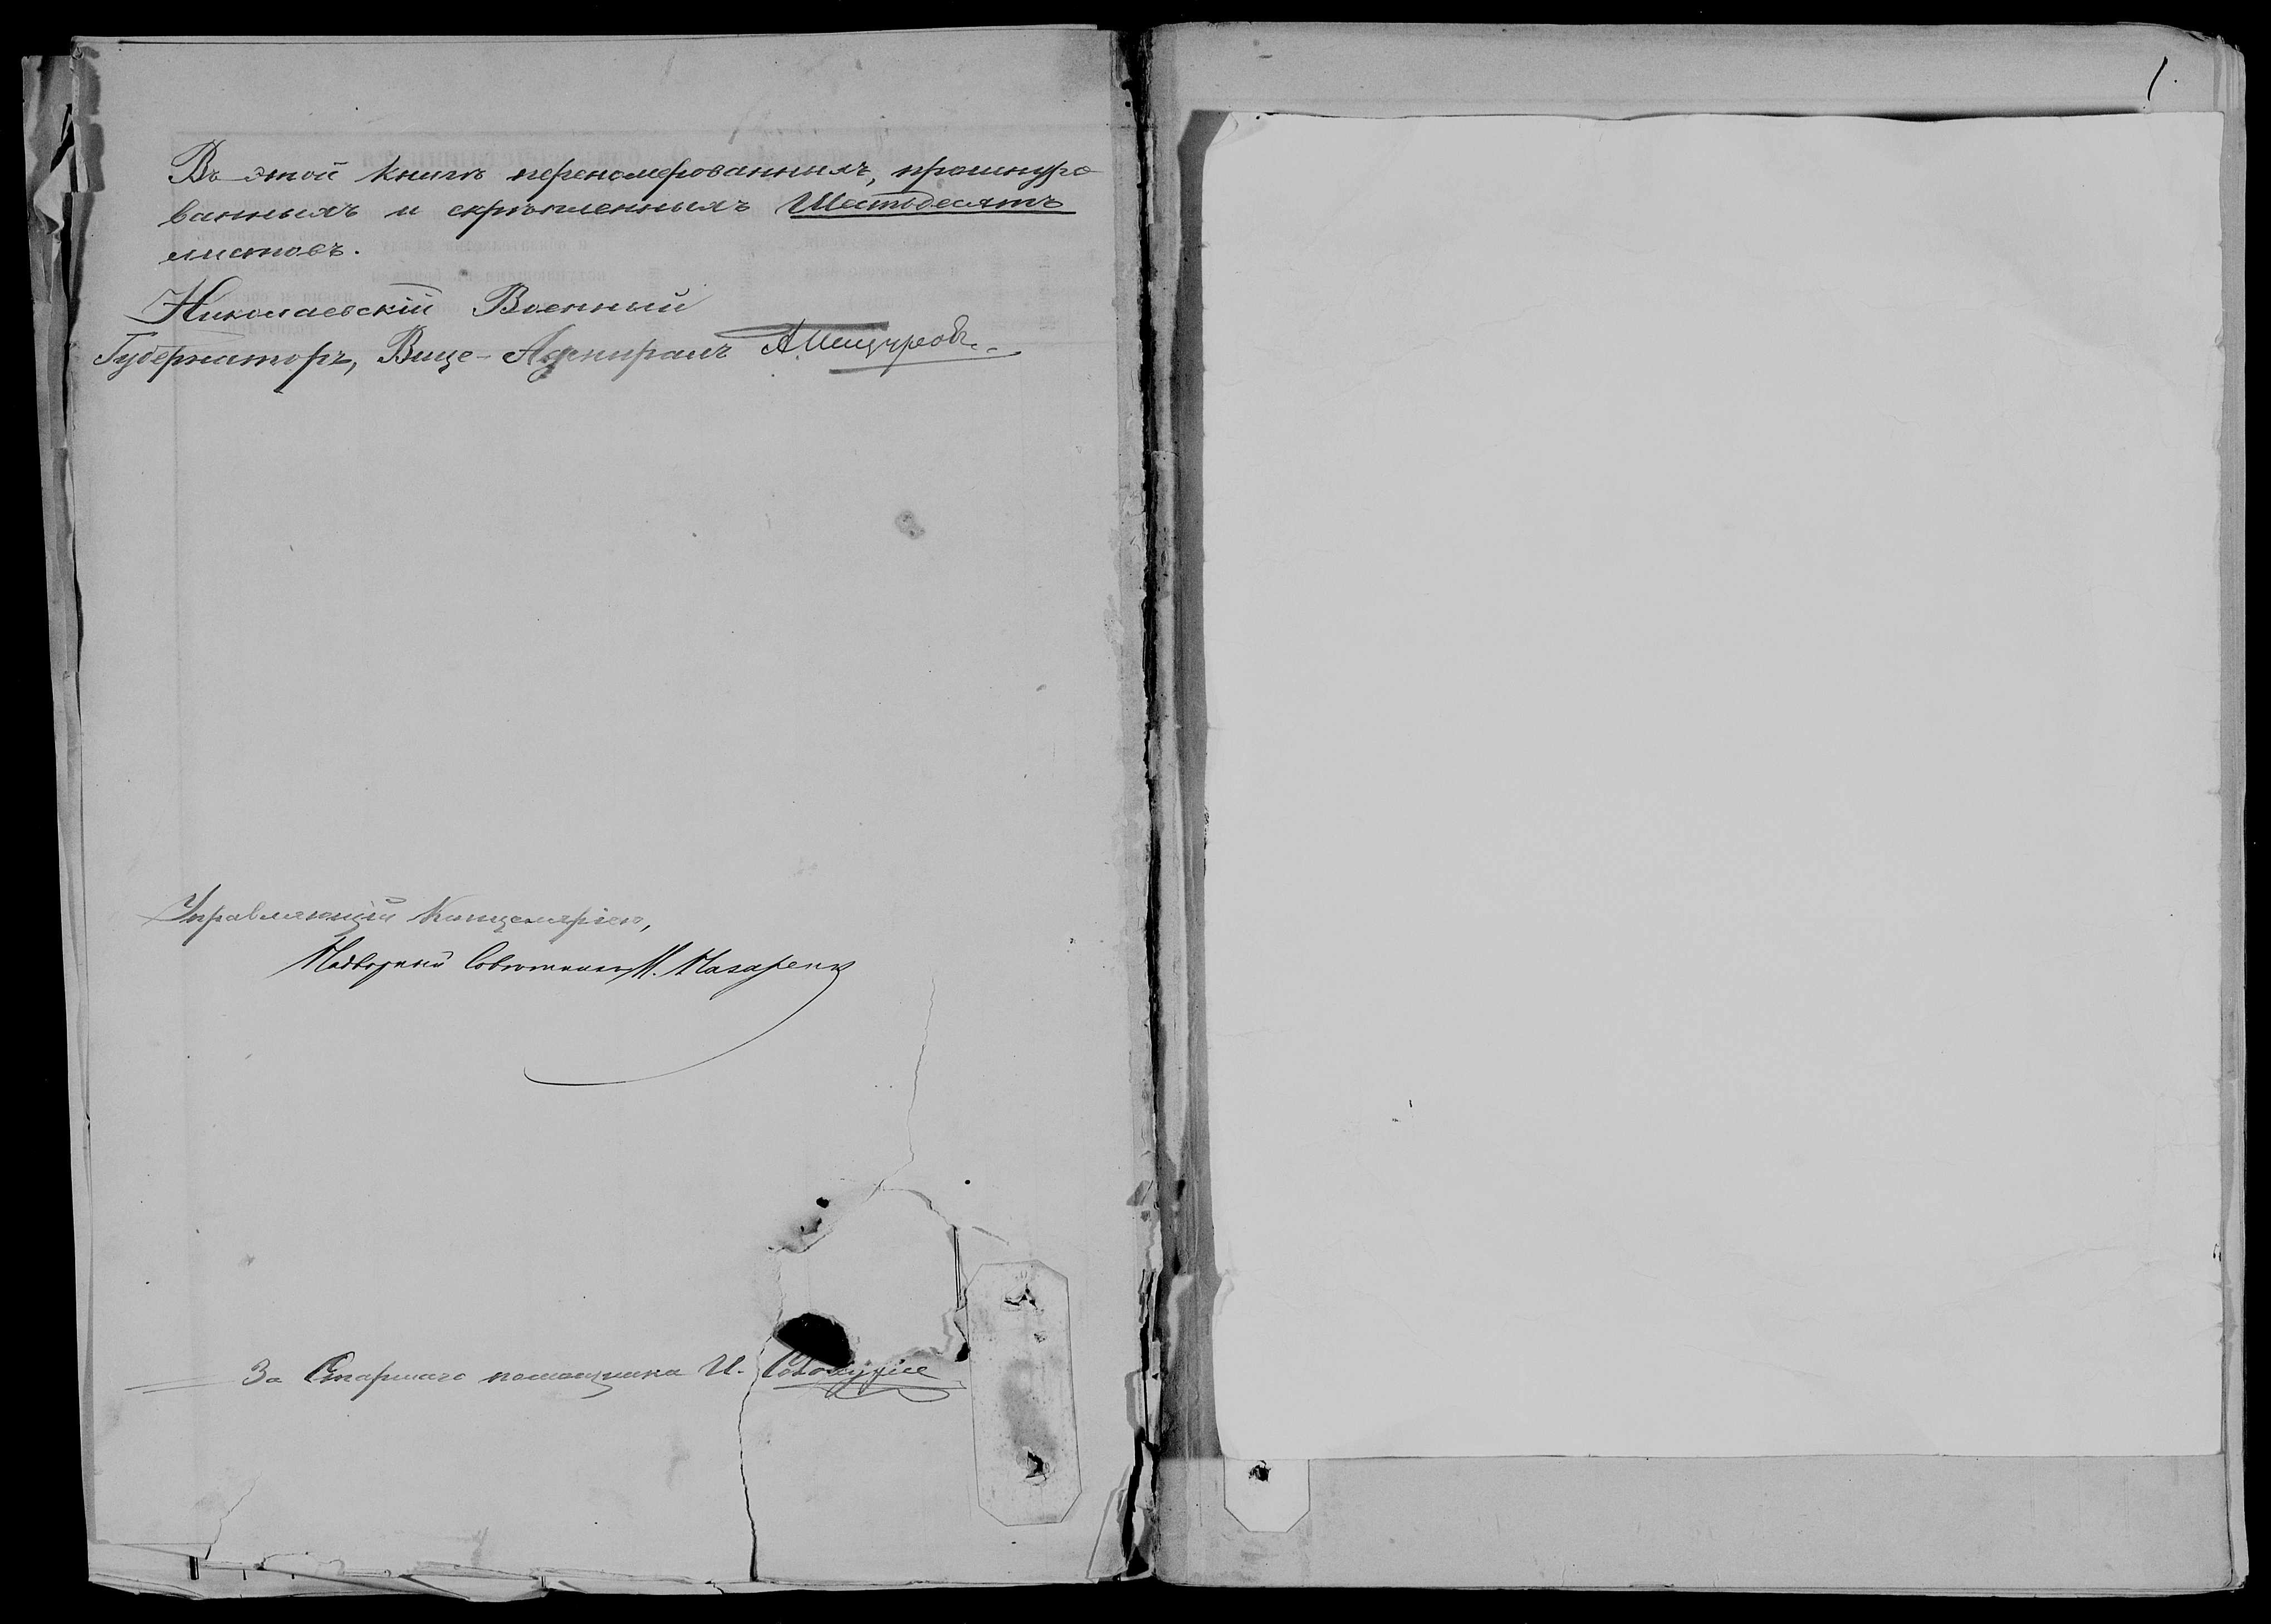 Въ этой книгѣ переномерованныхъ, прошнуро
ванныхъ и скрѣпленныхъ Шестьдесятъ
листовъ.
Николаевскій Военный
Губернаторъ, Вице-Адмиралъ А. Пещуровъ.
Управляющій Канцеляріею,
Надворный Совѣтникъ Н. Назаренк
За Старшаго помощника И.
1.